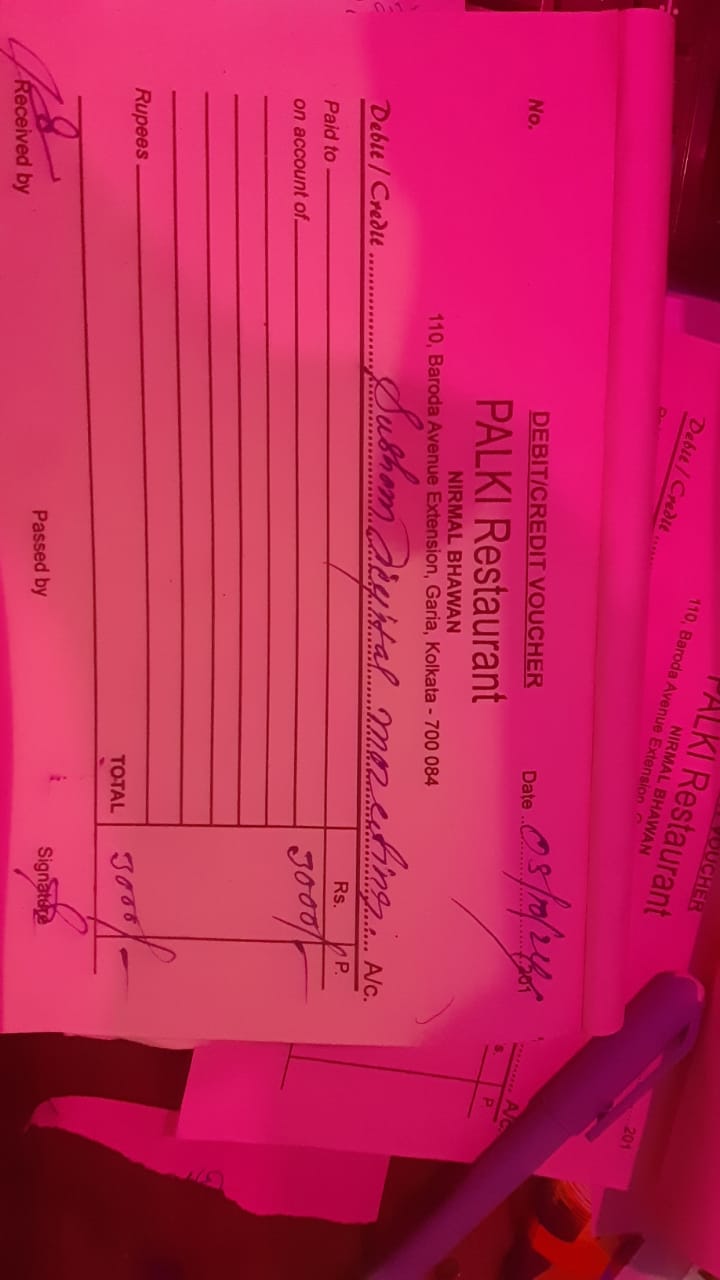 DEBIT/CREDIT VOUCHER
No.
Date
201
PALKI Restaurant
NIRMAL BHAWAN
110, Baroda Avenue Extension, Garia, Kolkata - 700 084
Debit / Credit Digital A/c.
Paid to Rs. P.
on account of 3000/-
Rupees
TOTAL 3000/-
Received by Passed by Signature
OUCHER
PALKI Restaurant
NIRMAL BHAWAN
110, Baroda Avenue Extension
201
Debit / Credit A/c.
P